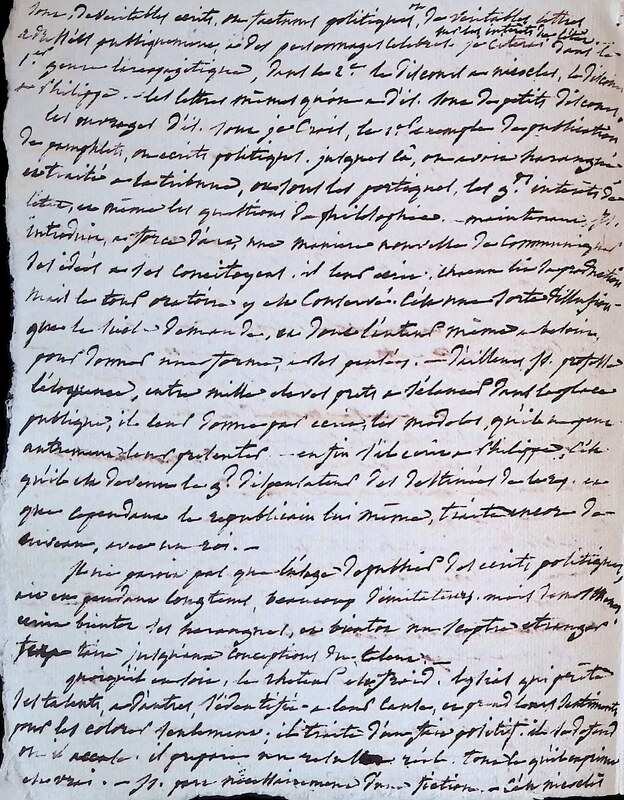 sont, de véritables écrits, ou factums politiques, de véritables lettres
adressées publiquement, a des personnages célèbres. sur les intérêts de l'état. je citerai dans le
1er genre l'aréopagitique, dans le 2e. le discours a nicoclès, le discours
a Philippe. - les lettres mêmes qu'on a d'is. sont de petits discours.
les ouvrages d'is. sont, je crois, le 1er exemple de publication
de pamphlets, ou écrits politiques. jusques là, on avoit harangué
et traité a la tribune, ou sous les portiques, les gds. intérêts de
l'état, et même les questions de philosophie. - maintenant, is.
introduit, a force d'art, une manière nouvelle de communiquer
ses idées a ses concitoyens. il leur écrit. chacun lit la production
mais le tour oratoire y est conservé. c'est une sorte d'illusion
que le siècle demande, et dont l'auteur même a besoin,
pour donner une forme, a ses pensées. - d'ailleurs is. professe
l'éloquence, entre mille élèves prets a s'élancer dans la place
publique, il leur donne par écrit, les modèles, qu'il ne peut
autrement leur présenter - enfin s'il écrit a Philippe, c'est
qu'il est devenu le gd. dispensateur des destinées de la grèce, et
que cependant le républicain lui même, traite encore de
niveau, avec un roi. -
Il ne paroit pas que l'usage de publier des écrits politiques,
ait eu pendant longtems, beaucoup d'imitateurs.
bientôt ses harangues, et bientôt un sceptre étranger
taire jusqu'aux conceptions du talent. -
quoiqu'il en soit, le rhéteur est froid. Lysias qui prête
ses talents, a d'autres, s'identifie a leur cause, et prend leurs sentiments
pour les colorer seulement; il traite d'une affaire positif. il se défend
ou il accuse. il prépare un résultat réel. tout ce qu'il exprime
est vrai. - is. part nécessairement d'une fiction. - c'est nicoclès